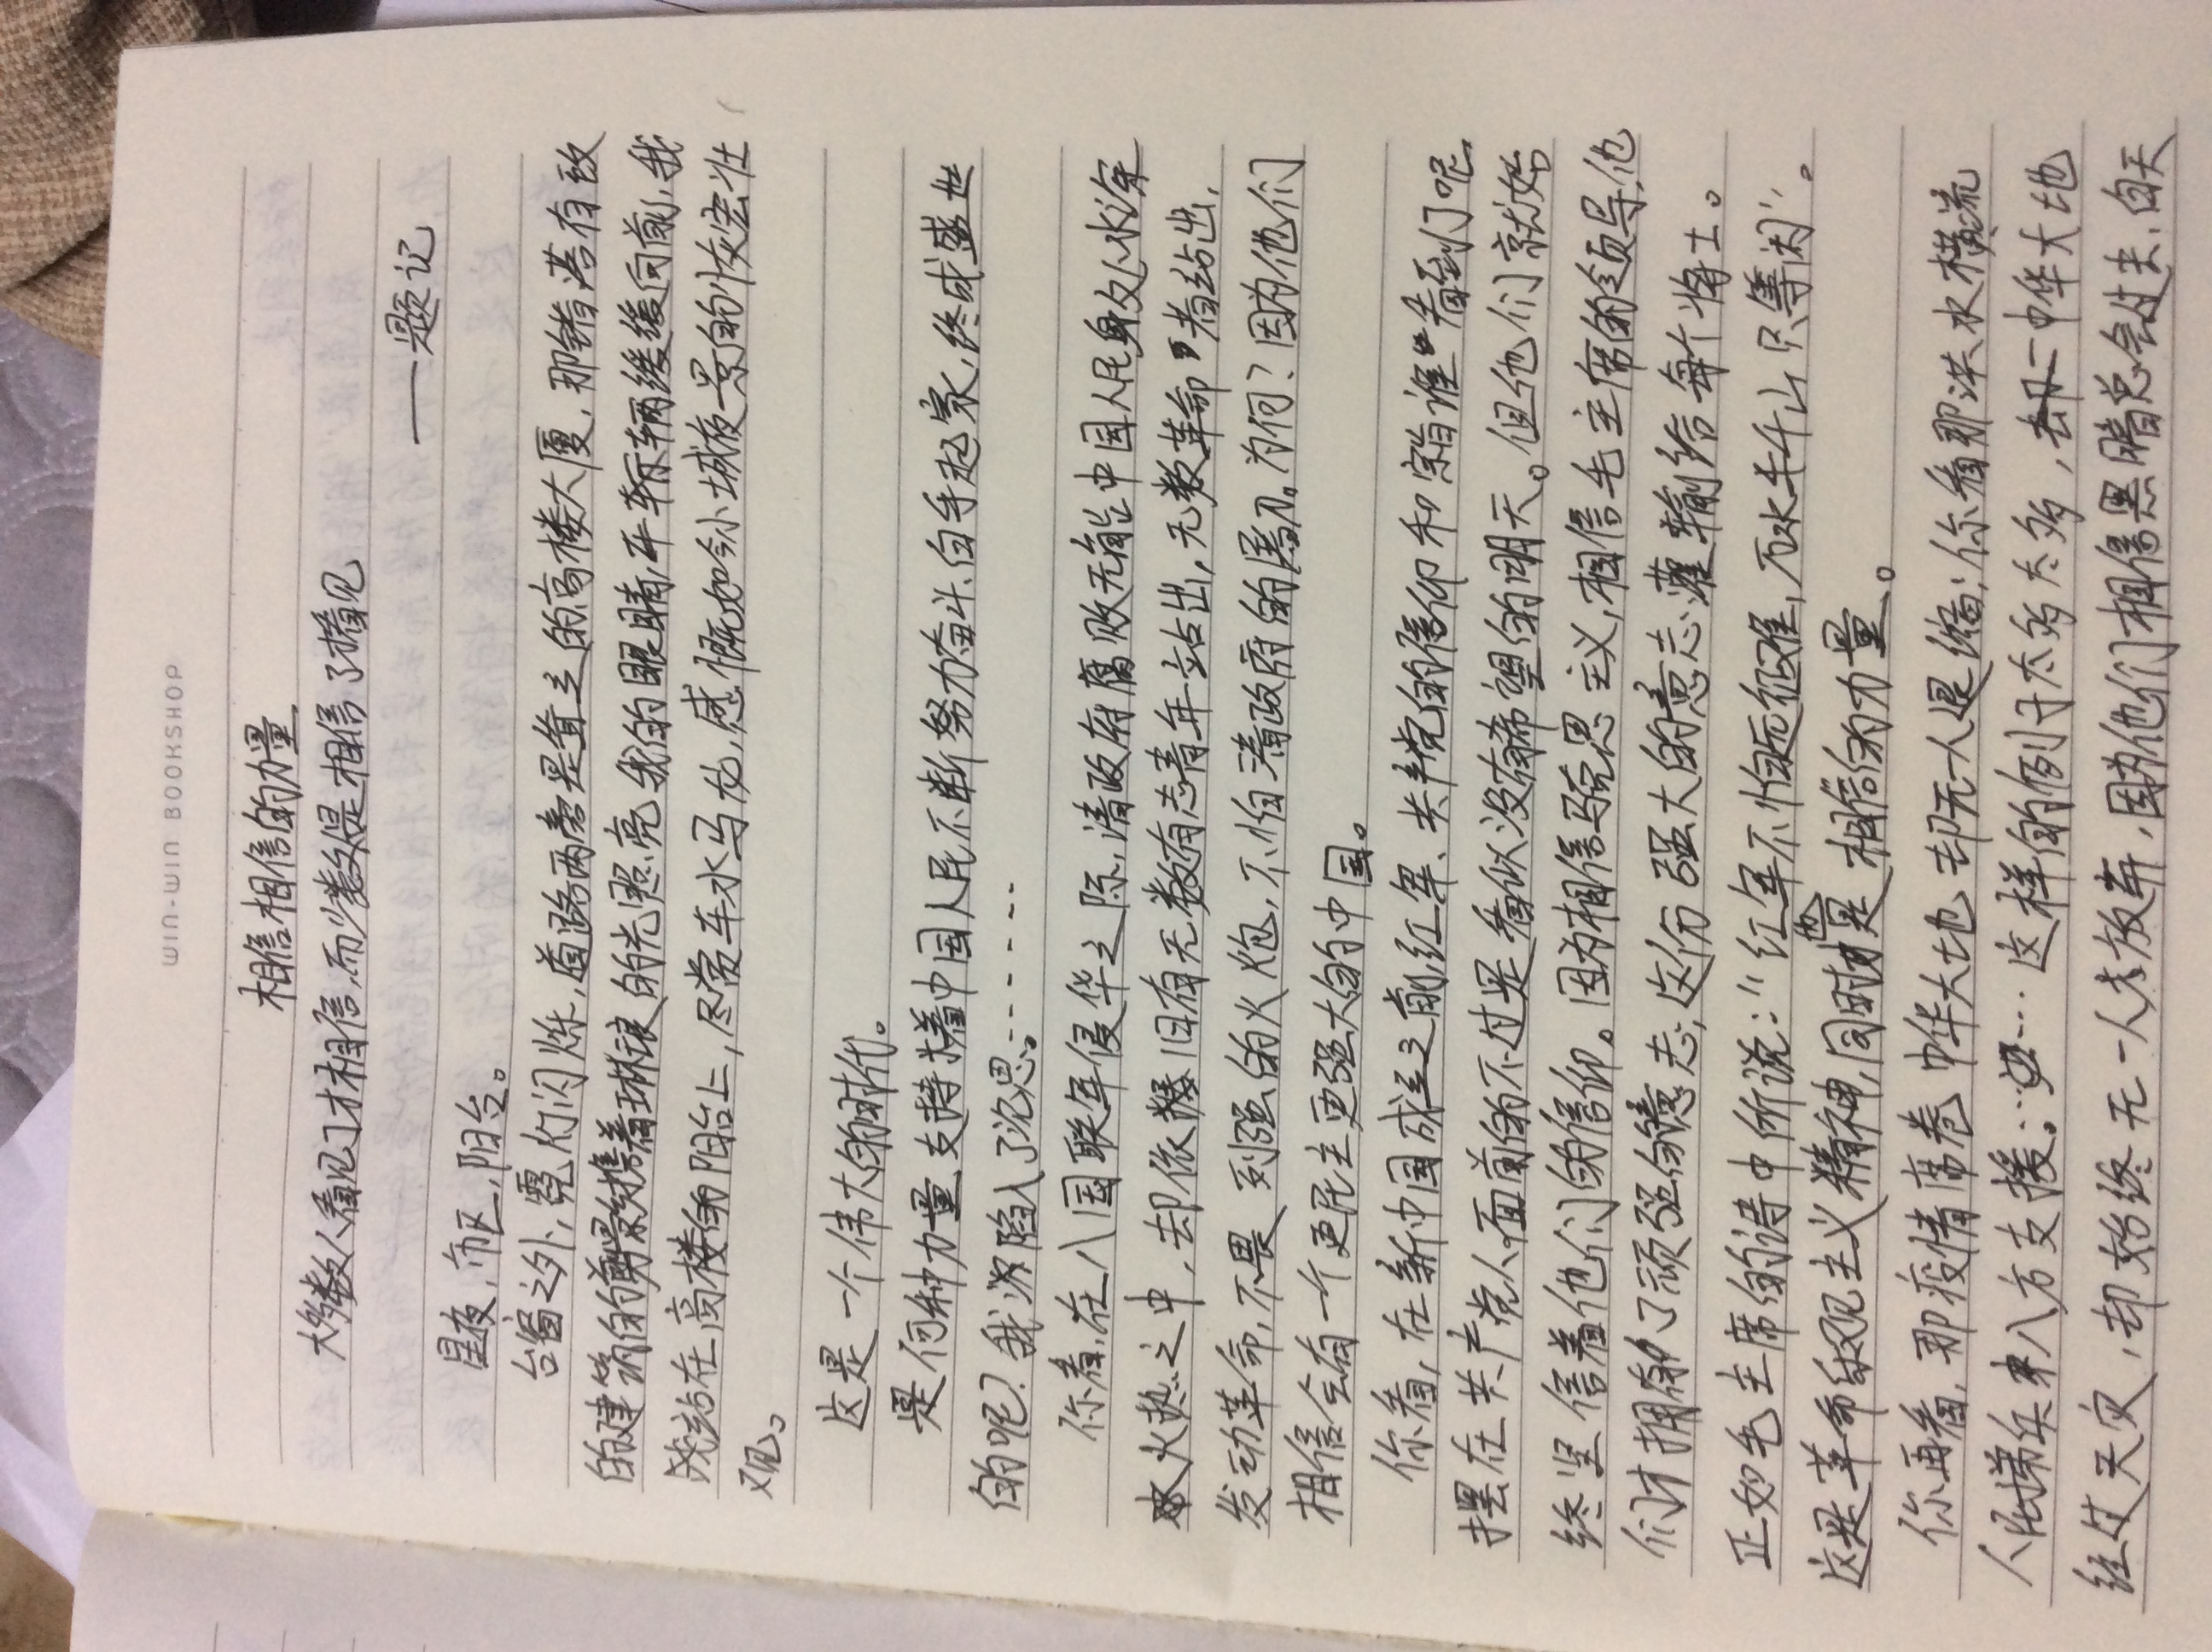 WIN-WIN BOOKSHOP
相信相信的力量
大多数人看见了才相信,而少数人是相信了才看见
——题记
星夜,市区,阳台。
台窗之外,霓灯闪烁,道路两旁是耸立的高楼大厦,那错落有致
的建筑的剪影携着琳琅的光照亮我的眼睛,车辆缓缓向前,我
站在高楼的阳台上,尽赏车水马龙,感慨如今小城夜景的恢宏壮
观。
这是一个伟大的时代。
是何种力量支持着中国人民不断努力奋斗、白手起家,终成盛世
的呢?我陷入了沉思……
你看,在八国联军侵华之际,清政府腐败无能,中国人民身处水深
火热之中,却依旧有无数有志青年站出,无数革命者站出,
发动革命,不畏列强的火炮,不怕清政府的屠刀。为何?因为他们
相信会有一个更民主更强大的中国。
你看,在新中国成立之前,红军、共产党的信仰和宗旨谁看到了呢
摆在共产党人面前的不过是看似没有希望的明天。但他们就始
终坚信着他们的信仰。因为相信马克思主义,相信毛主席的领导,他
们才拥有了顽强的意志,这份强大的意志灌输给每个将士。
正如毛主席的诗中所说:“红军不怕远征难,万水千山只等闲”。
这是革命乐观主义精神,同时也是相信的力量。
你再看,那疫情席卷中华大地,却无一人退缩;你看那洪水横流
人民子弟兵八方支援……这样的例子太多太多,中华大地
经过天灾,却始终无一人去放弃,因为他们相信黑暗总会过去,白天